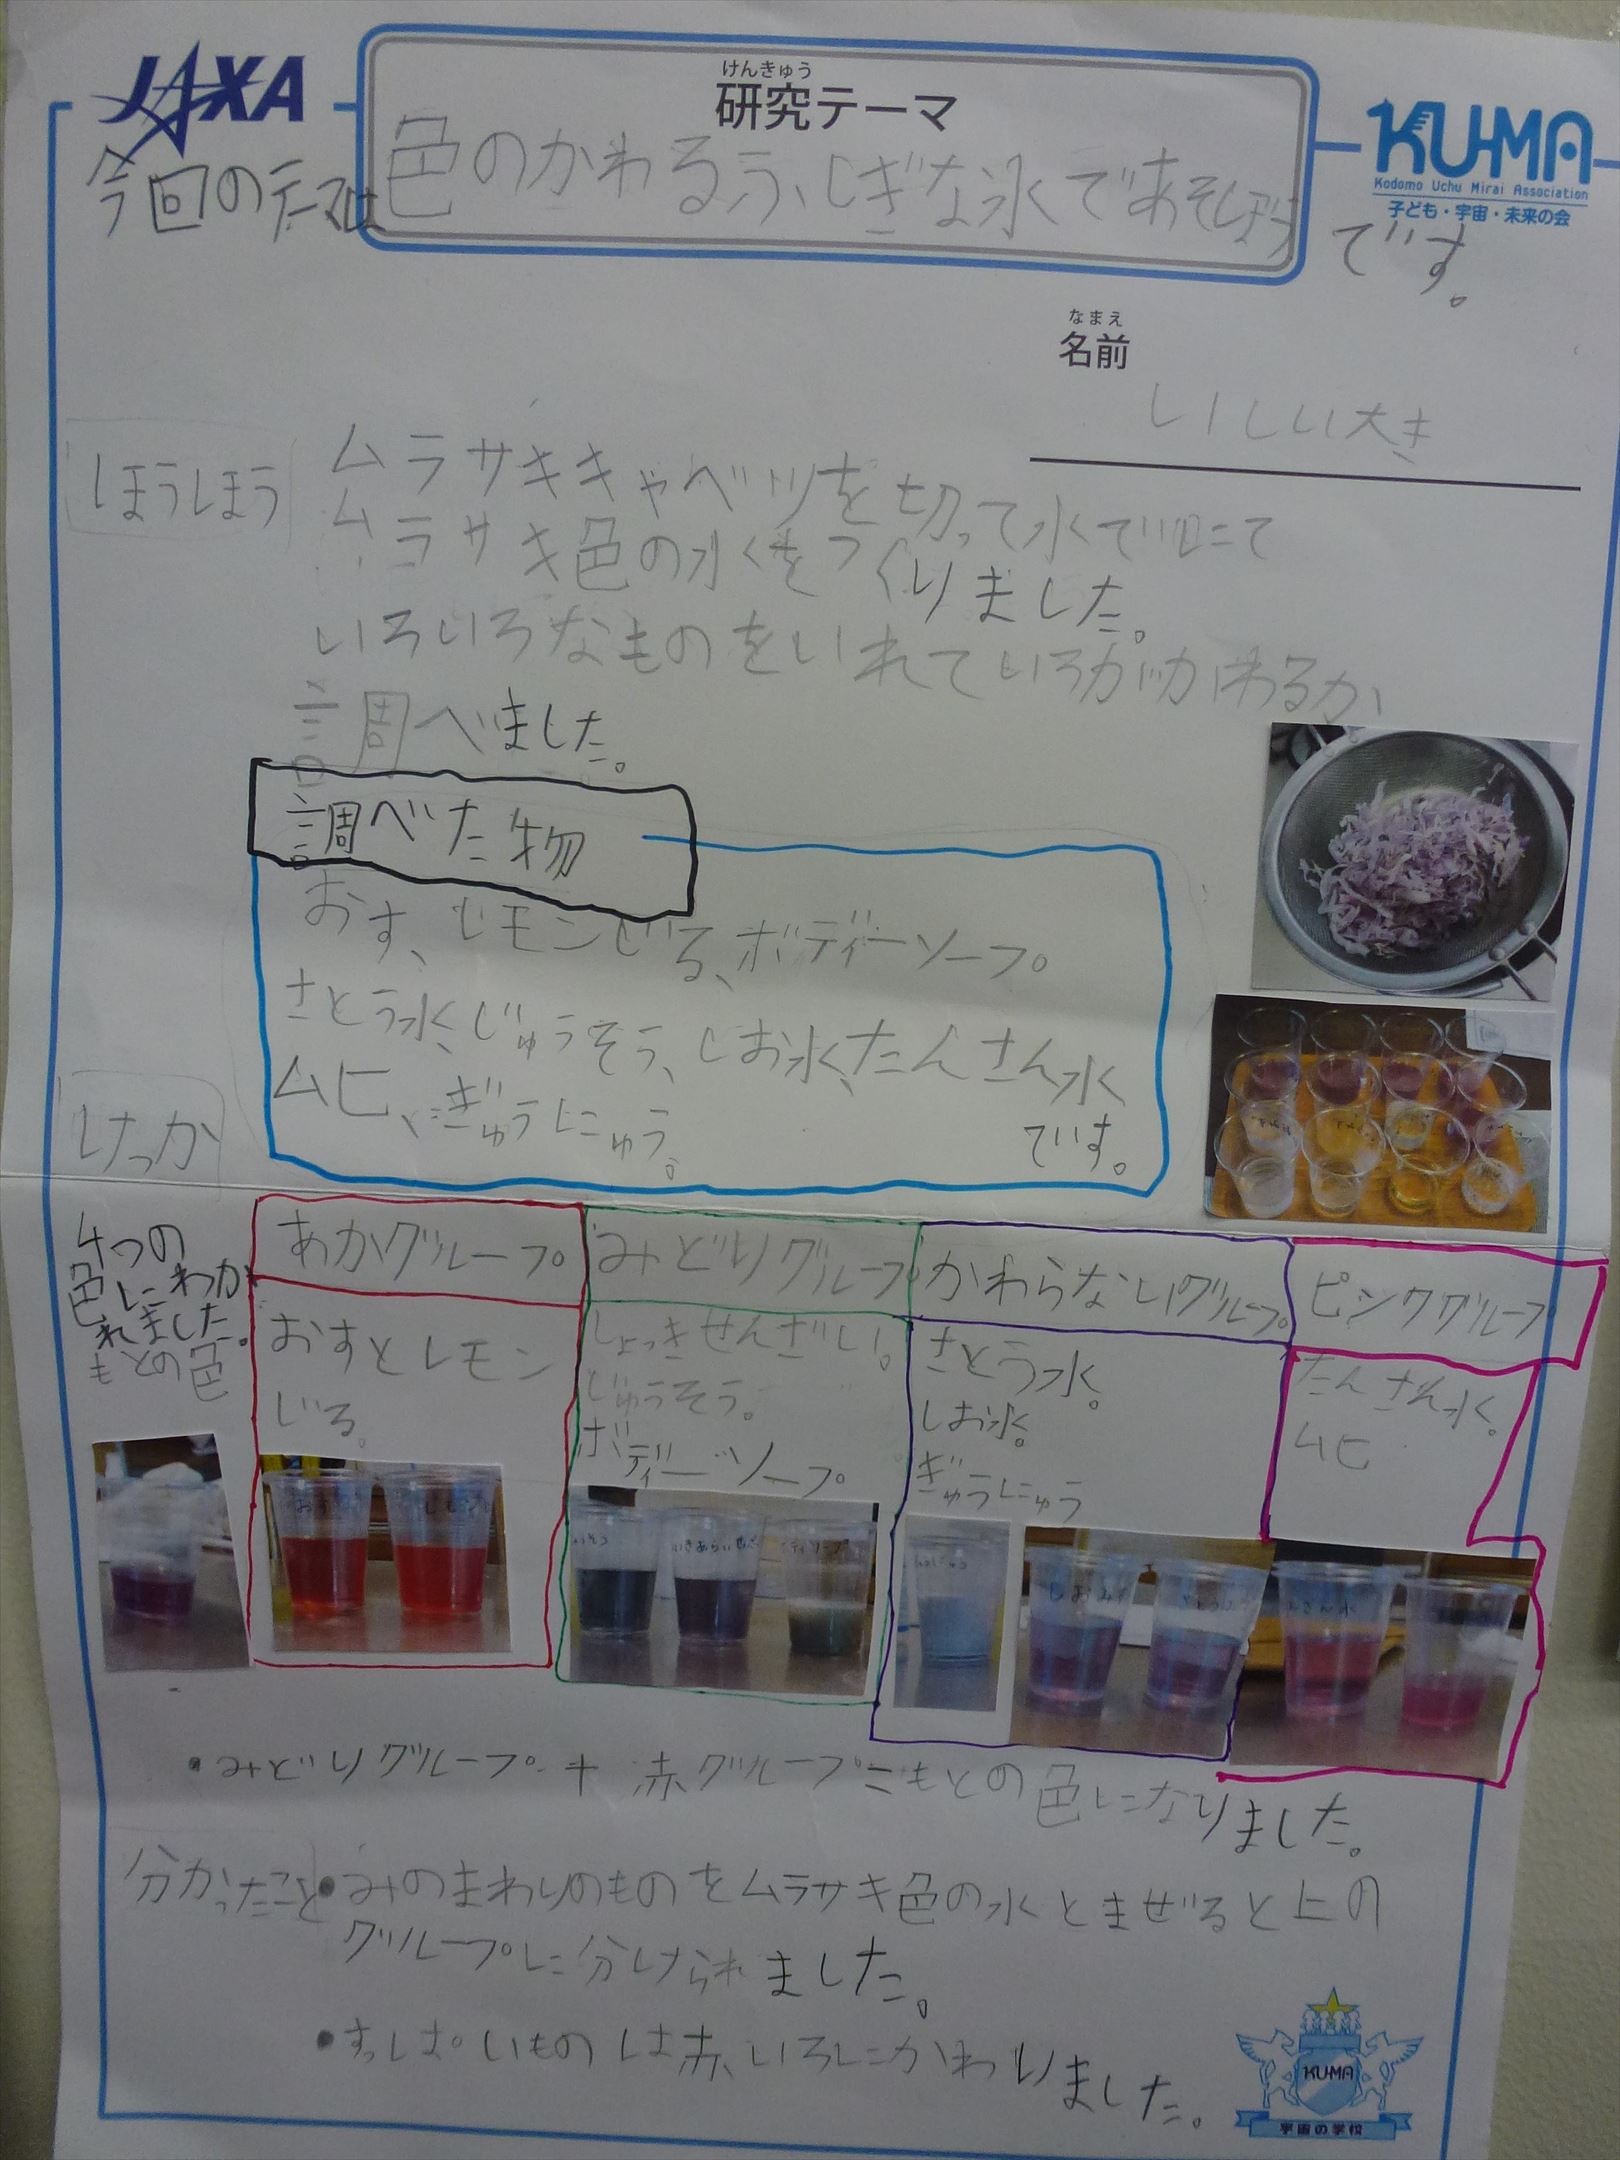 JAXA
けんきゅう
研究テーマ
KUMA
Kodomo Uchu Mirai Association
子ども・宇宙・未来の会
今回のテーマは
色のかわるふしぎな水であそしょう
です。
なまえ
名前
いしい大き
ほうほう
ムラサキキャベツを切って水でにて
ムラサキ色の水をつくりました。
いろいろなものをいれていろがかわるか
調べました。
調べた物
おす、レモンじる、ボディーソープ。
さとう水、じゅうそう、しお水、たんさん水
ムヒ、ぎゅうにゅう。
です。
けっか
4つの
色にわか
れました。
もとの色
あかグループ
おすとレモン
じる。
みどりグループ
しょっきせんざい。
じゅうそう。
ボディーソープ
かわらないグループ
さとう水。
しお水。
ぎゅうにゅう
ピンクグループ
たんさん水。
ムヒ
・みどりグループ+赤グループ=もとの色になりました。
分かったこと・みのまわりのものをムラサキ色の水とまぜると上の
グループに分けられました。
・すっぱいものは赤いろにかわりました。
KUMA
宇宙の学校